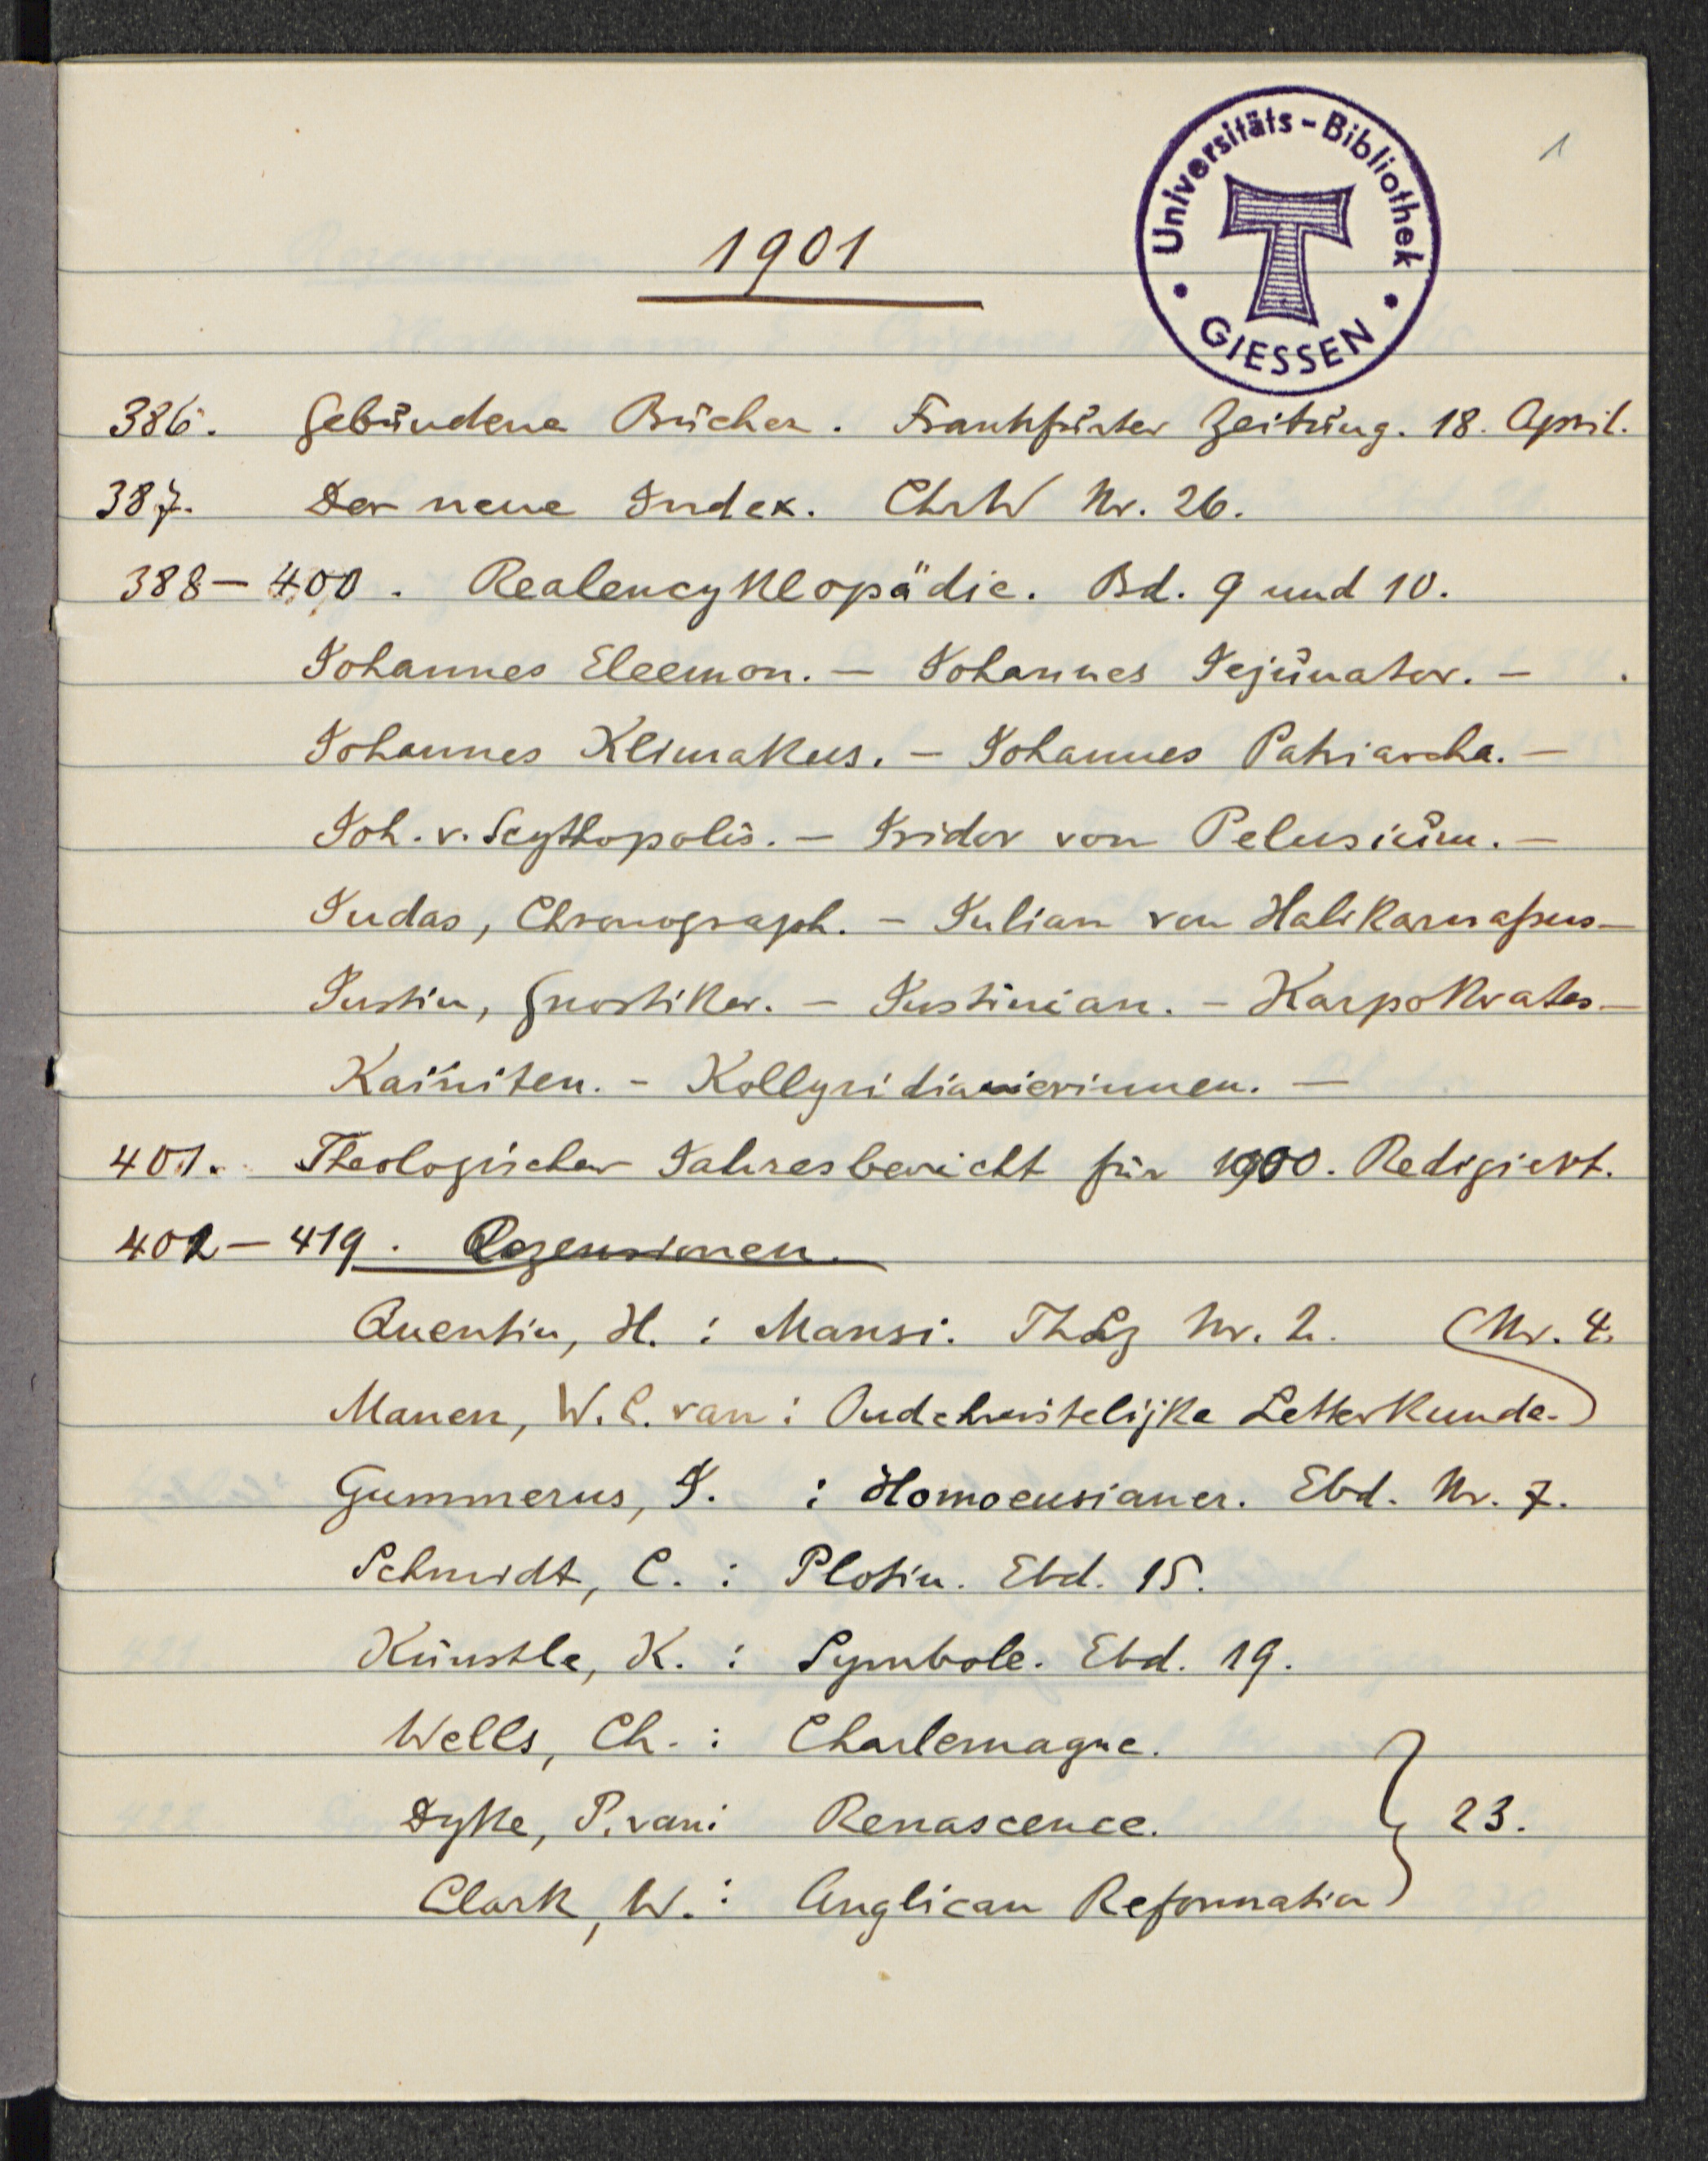 1
Universitäts-Bibliothek
GIESSEN
1901
386. Gebundene Bücher. Frankfurter Zeitung. 18. April.
387. Der neue Index. ChrW Nr. 26.
388-400. Realencyklopädie. Bd. 9 und 10.
Johannes Eleemon. - Johannes Jejunator. -
Johannes Klimakus. - Johannes Patriarcha. -
Joh. v. Scythopolis. - Isidor von Pelusium. -
Judas, Chronograph. - Julian von Halikarnassus -
Justin, Gnostiker. - Justinian. - Karpokrates -
Kainiten. - Kollyridianerinnen. -
401. Theologischer Jahresbericht für 1900. Redigiert.
402-419. Rezensionen.
Quentin, H. : Mansi. ThLz Nr. 2. (Nr. 4.
Manen, W. C. van : Oudchristelijke Letterkunde.)
Gummerus, J. : Homoeusianer. Ebd. Nr. 7.
Schmidt, C. : Plotin. Ebd. 15.
Künstle, K. : Symbole. Ebd. 19.
Wells, Ch. : Charlemagne.
Dyke, P. van: Renascence. 23.
Clark, W. : Anglican Reformation